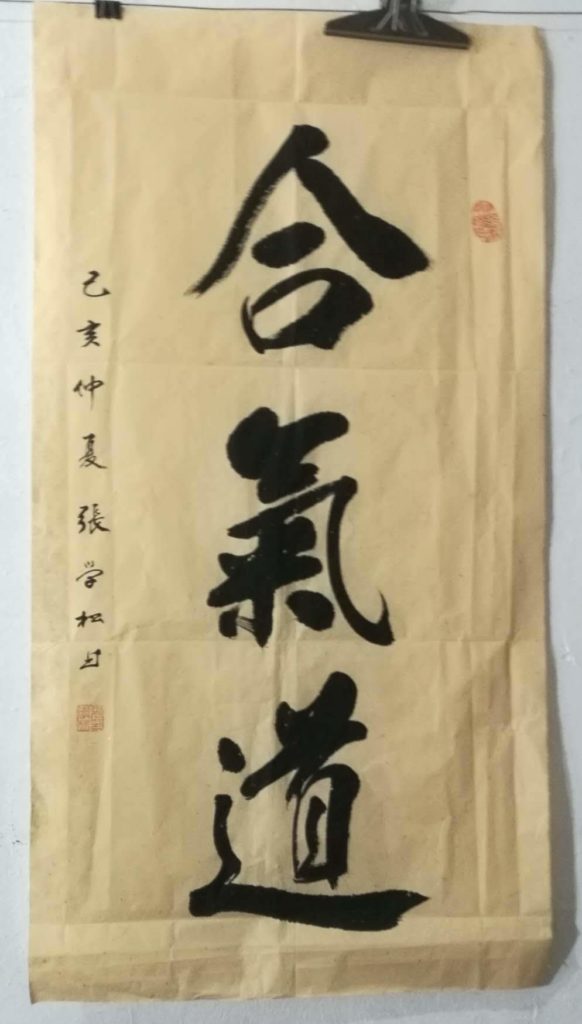 合氣道
己亥仲夏張学松书